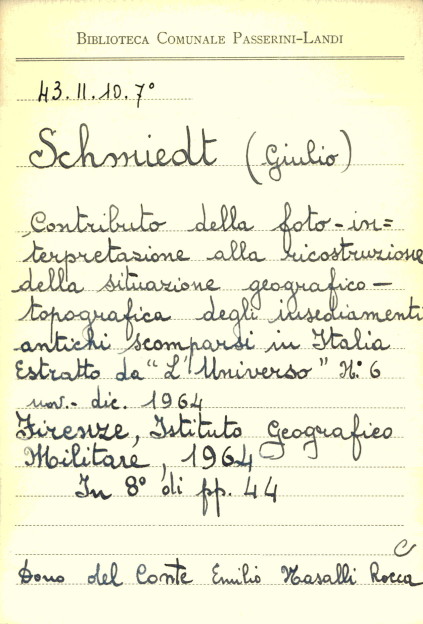 BIBLIOTECA COMUNALE PASSERINI-LANDI
43.II.10.7°
Schmiedt (Giulio)
Contributo della foto-in=
terpretazione alla ricostruzione
della situazione geografico-
topografica degli insediamenti
antichi scomparsi in Italia
Estratto da "L'Universo" N.° 6
nov.- dic. 1964
Firenze, Istituto Geografico
Militare, 1964
In 8° di pp. 44
C
Dono del Conte Emilio Nasalli Rocca